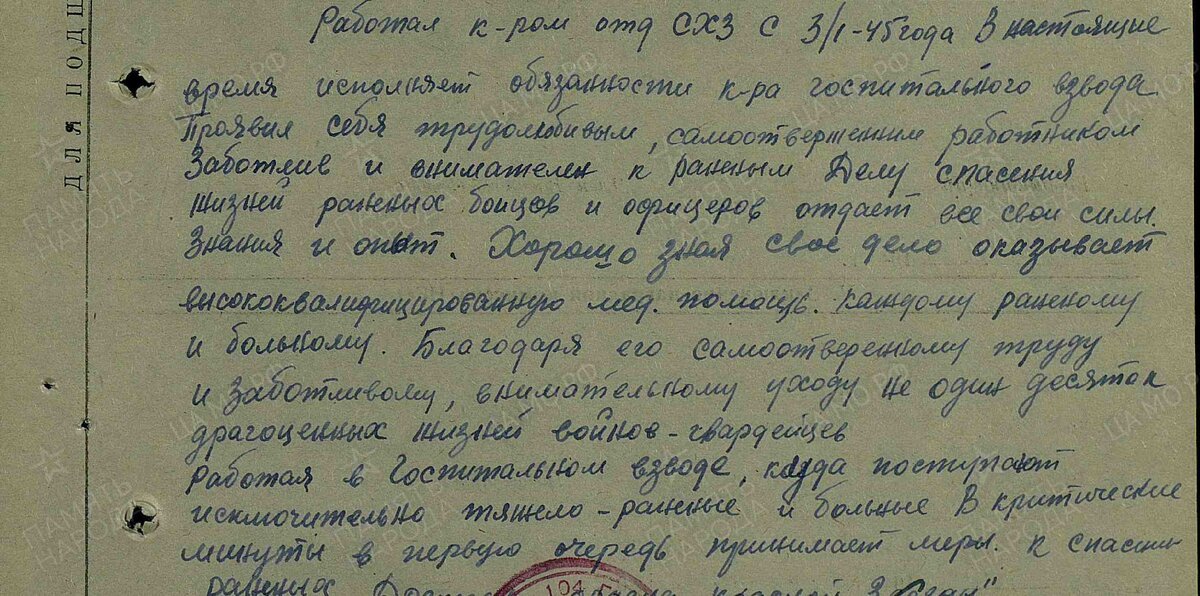 ДЛЯ ПОДШ
Работал к-ром отд СХЗ с 3/I-45 года В настоящие
время исполняет обязанности к-ра госпитального взвода
Проявил себя трудолюбивым, самоотверженим работником
Заботлив и внимателен к раненым Делу спасения
жизней раненых бойцов и офицеров отдает все свои силы.
Знания и опыт. Хорошо зная свое дело оказывает
высококвалифицированную мед. помощь. каждому раненому
и больному. Благодаря его самоотверенному труду
и заботливому, внимательному уходу не один десяток
драгоценных жизней войнов-гвардейцев
Работая в Госпитальном взводе, куда поступают
исключительно тяжело-раненые и больные В критические
минуты в первую очередь принимает меры. к спасению
раненых
104